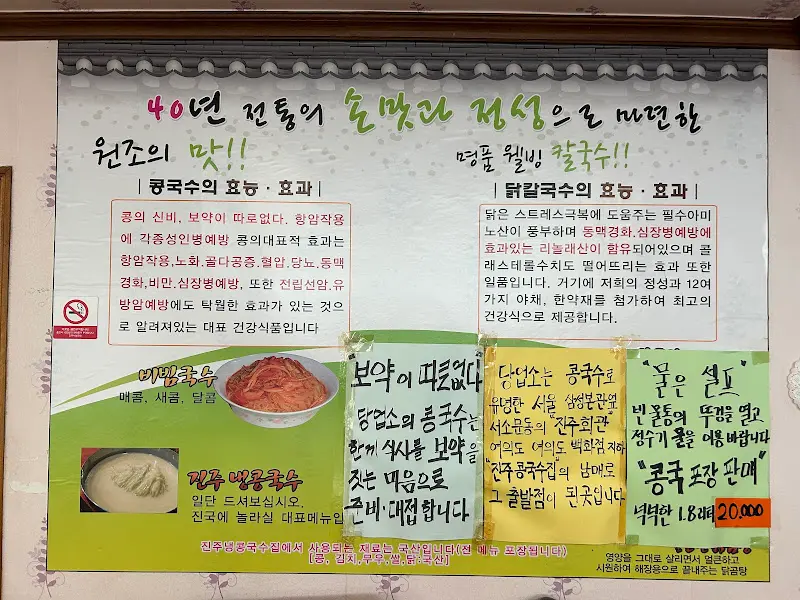 40년 전통의 손맛과 정성으로 마련한
원조의 맛!!
명품 웰빙 칼국수!!
| 콩국수의 효능 · 효과 |
콩의 신비, 보약이 따로없다. 항암작용
에 각종성인병예방 콩의대표적 효과는
항암작용,노화.골다공증.혈압.당뇨.동맥
경화,비만.심장병예방, 또한 전립선암.유
방암예방에도 탁월한 효과가 있는 것으
로 알려져있는 대표 건강식품입니다
| 닭칼국수의 효능 · 효과 |
닭은 스트레스극복에 도움주는 필수아미
노산이 풍부하며 동맥경화.심장병예방에
효과있는 리놀래산이 함유되어있으며 콜
래스테롤수치도 떨어뜨리는 효과 또한
일품입니다. 거기에 저희의 정성과 12여
가지 야채, 한약재를 첨가하여 최고의
건강식으로 제공합니다.
비빔국수
매콤, 새콤, 달콤
진주 냉콩국수
일단 드셔보십시오,
진국에 놀라실 대표메뉴입
"보약이 따로없다
당업소의 콩국수는
한끼 식사를 보약을
짓는 마음으로
준비·대접합니다
당업소는 콩국수로
유명한 서울 삼성본관옆
서소문동의 "진주회관"
여의도 여의도 백화점 지하
"진주 콩국수집"의 남매로
그 출발점이 된곳입니다
"물은 셀프"
빈 물통의 뚜껑을 열고
정수기 물을 이용 바랍니다
"콩국 포장 판매"
넉넉한 1.8리터 20.000
진주냉콩국수집에서 사용되는 재료는 국산입니다(전 메뉴 포장됩니다)
[콩, 김치,무우,쌀,닭:국산]
영양을 그대로 살리면서 얼큰하고
시원하여 해장용으로 끝내주는 닭곰탕